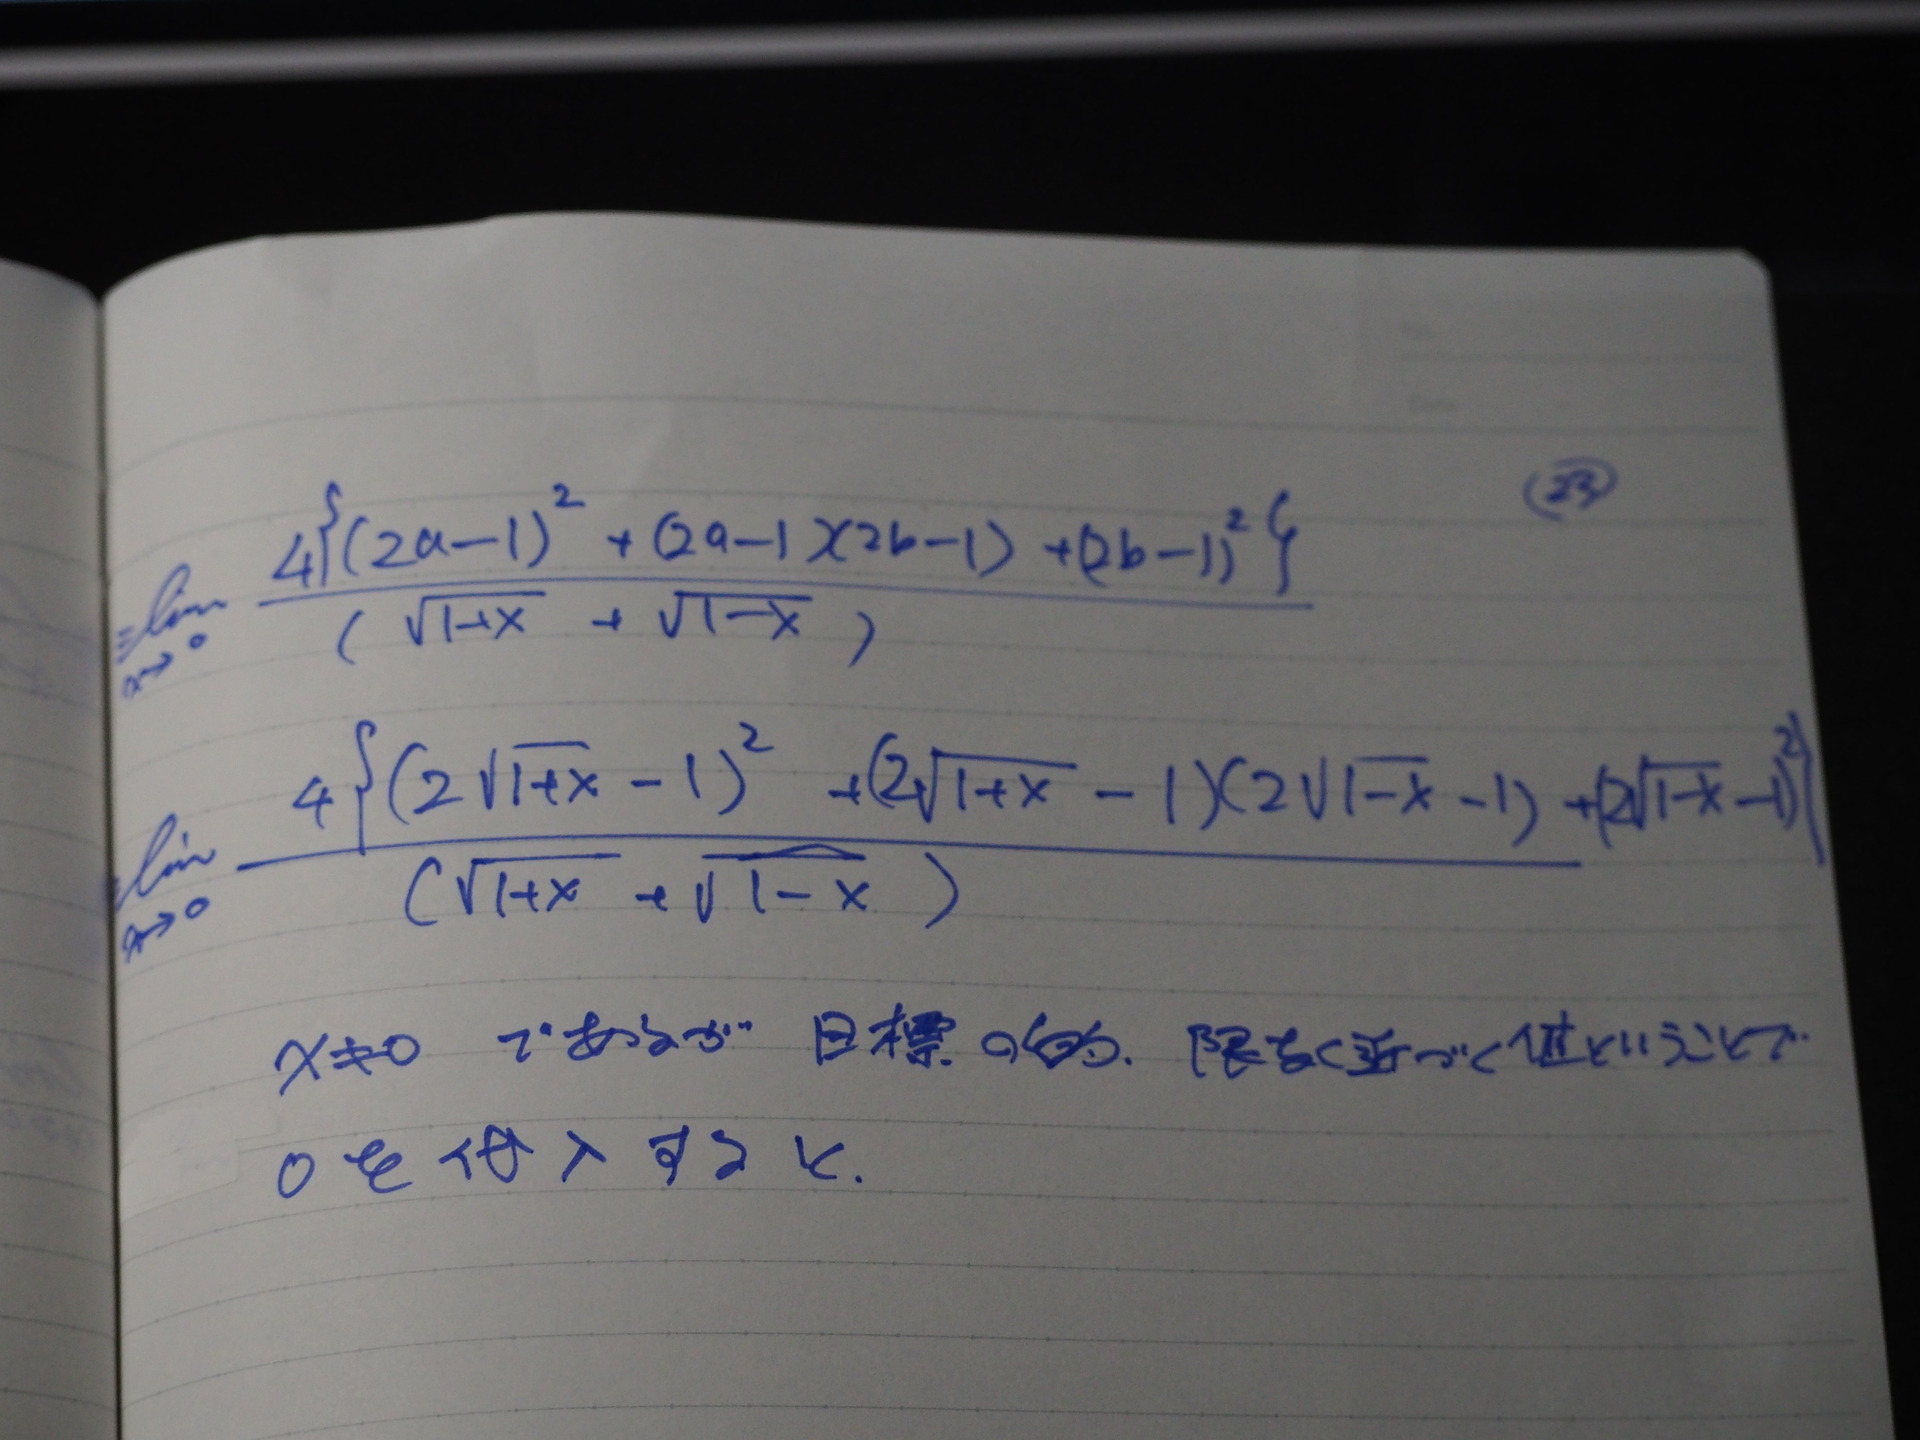 (23)
= lim x→0 4{(2a-1)² + (2a-1)(2b-1) + (2b-1)²} / (√1+x + √1-x)
= lim x→0 4{(2√1+x - 1)² + (2√1+x - 1)(2√1-x - 1) + (2√1-x - 1)²} / (√1+x + √1-x)
x≠0 であるが 目標の 限なく近づく値ということで
0を代入すると.